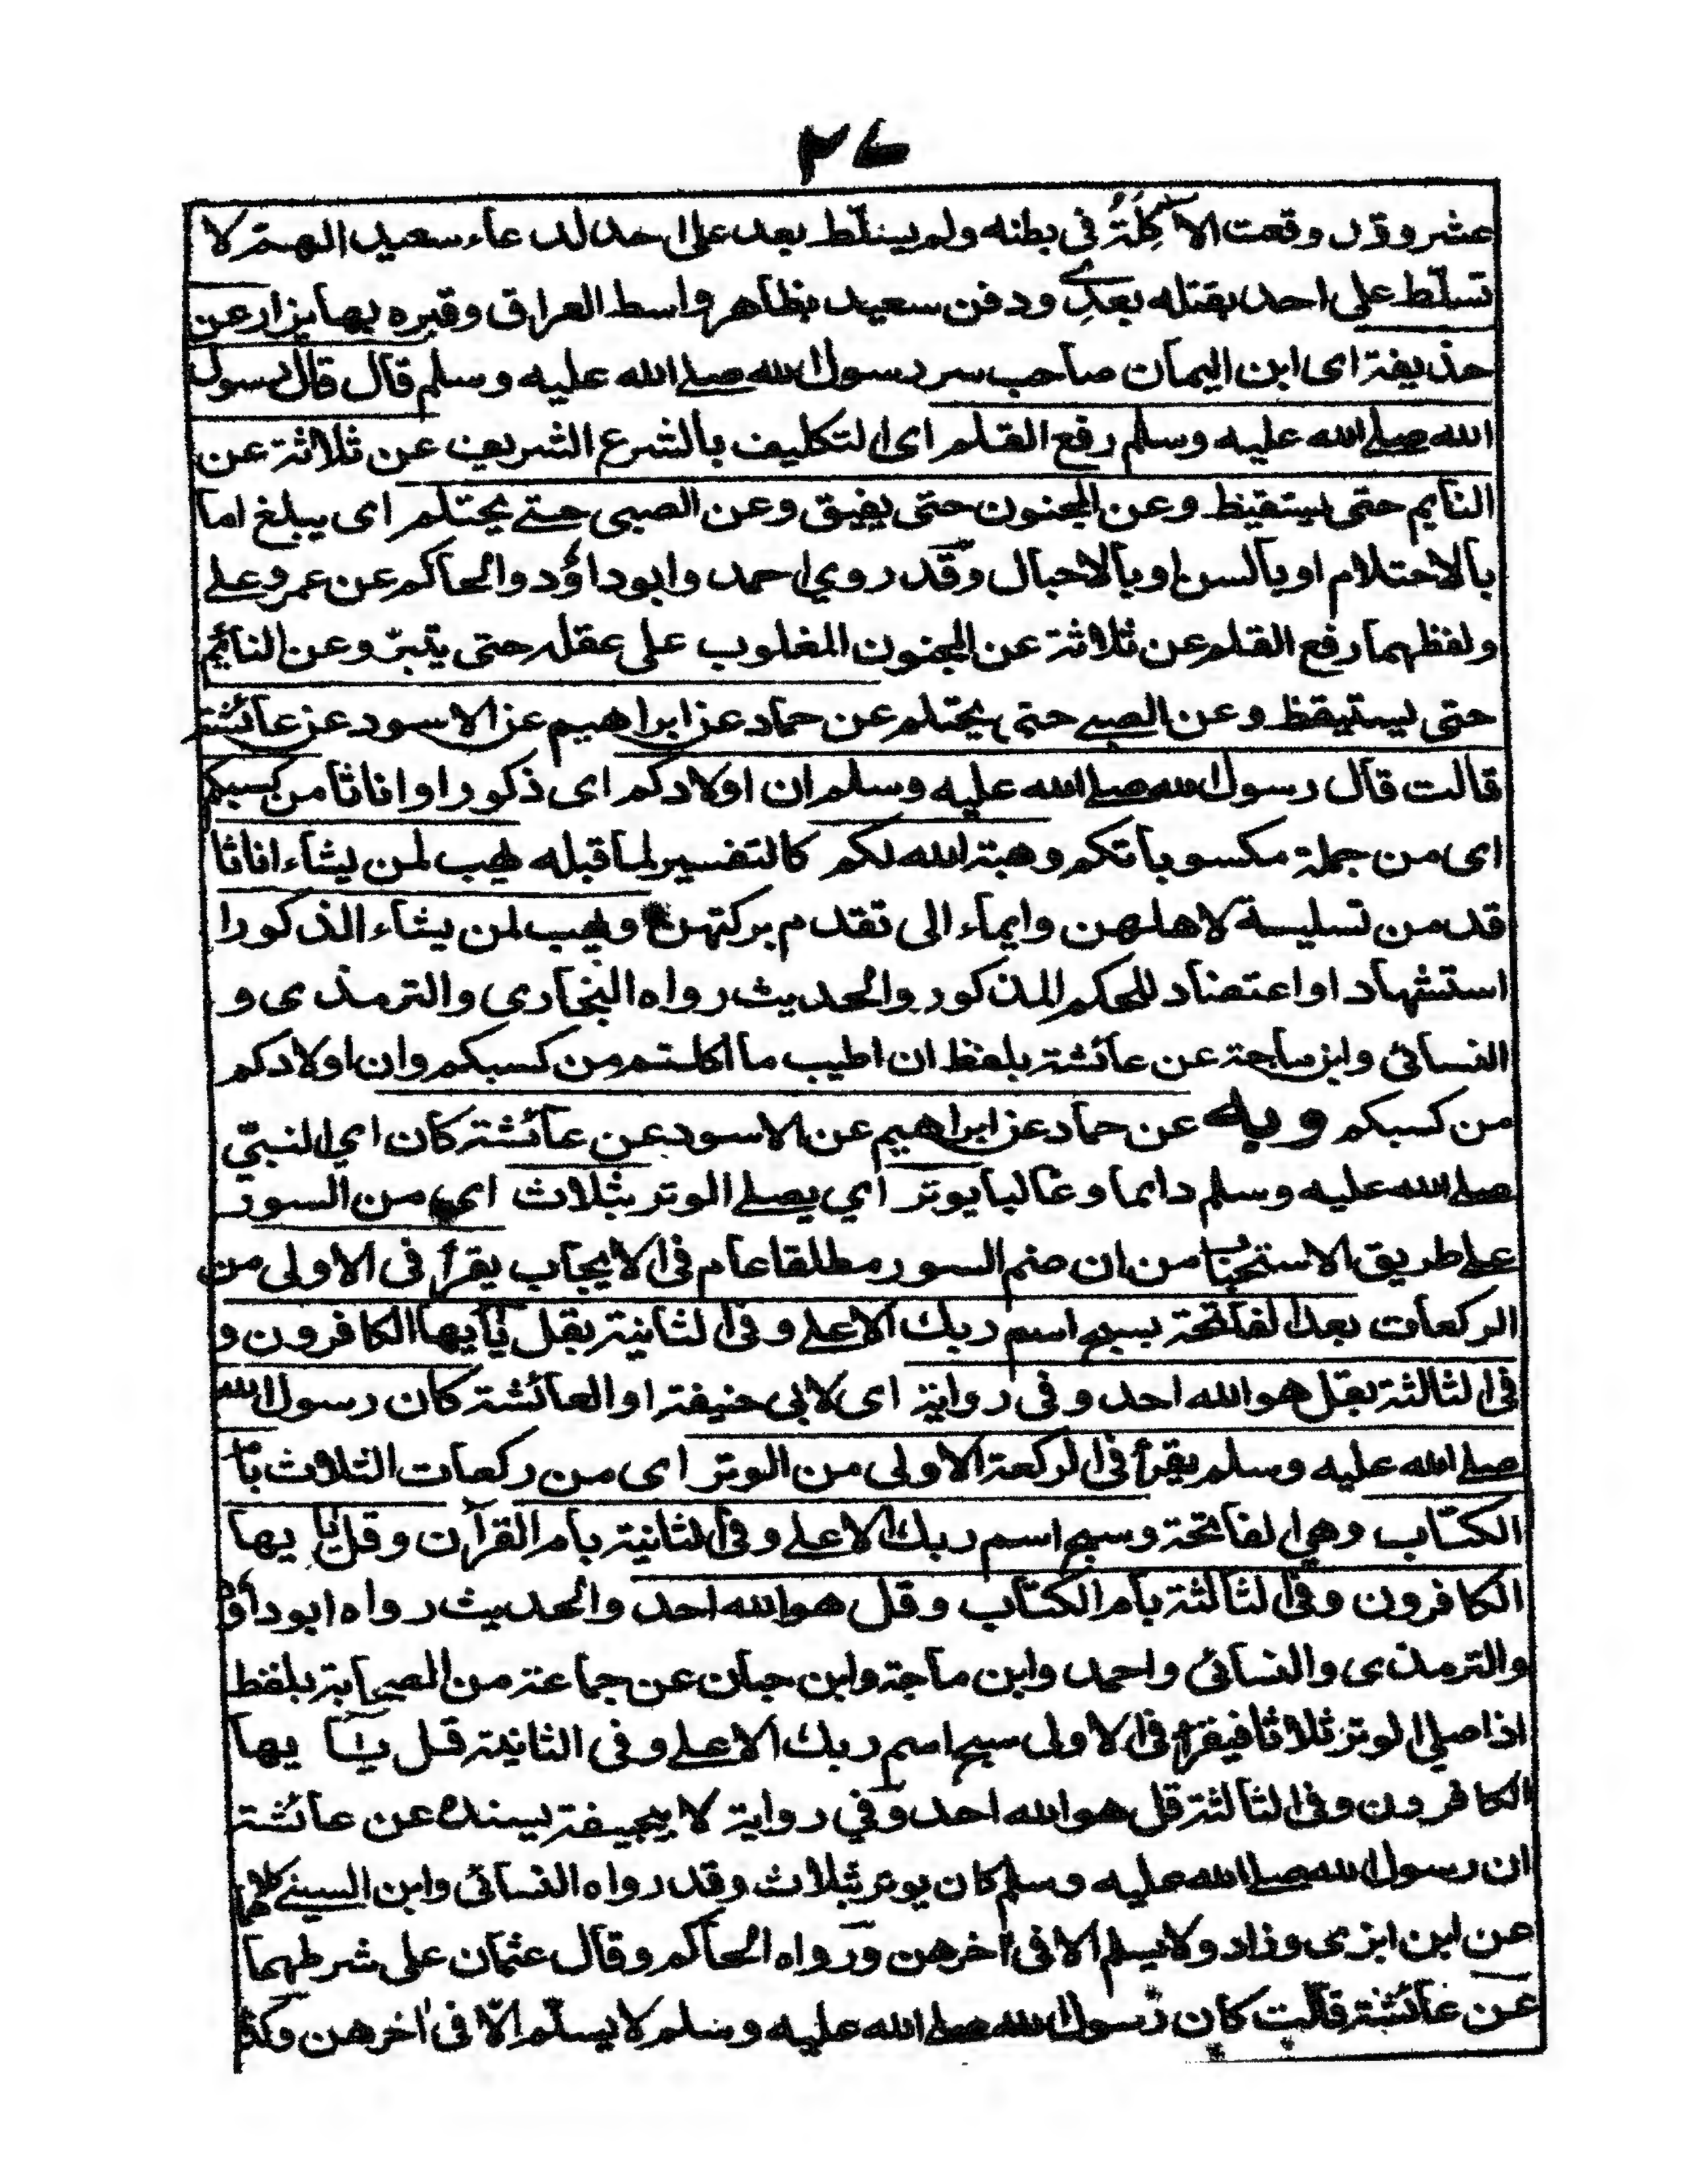 ٢٧
عشر وقد وقعت الاٰكِلَةُ فى بطنه ولم يسلّط بعد على احد لدعاء سعيد الهمّ لا
تسلّط على احد بقتله بعدى ودفن سعيد بظاهر واسط العراق وقبره بها يزار عن
حذيفة اى ابن اليمان صاحب سر رسول الله صلے الله عليه وسلم قال قال رسول
الله صلے الله عليه وسلم رفع القلم اى التكليف بالشرع الشريف عن ثلاثة عن
النايم حتى يستقيظ وعن المجنون حتى يفيق وعن الصبى حتے يحتلم اى يبلغ اما
بالاحتلام او بالسن او بالاحبال وقد روى احمد وابو داؤد والحاكم عن عمر وعلے
ولفظهما رفع القلم عن ثلاثة عن المجنون المغلوب على عقله حتى يتبرّ وعن النائم
حتى يستيقظ وعن الصبے حتى يحتلم عن حماد عن ابراهيم عن الاسود عن عائشة
قالت قال رسول الله صلے الله عليه وسلم ان اولادكم اى ذكورا واناثا من كسبكم
اى من جملة مكسوباتكم وهبة الله لكم كالتفسير لما قبله يهب لمن يشاء اناثا
قد من تسلية لاهلهن وايماء الى تقدم بركتهن ويهب لمن يشاء الذكورا
استشهاد او اعتضاد للحكم المذكور والحديث رواه البخارى والترمذى و
النسائى وابن ماجة عن عائشة بلفظ ان اطيب ما اكلتم من كسبكم وان اولادكم
من كسبكم وبه عن حماد عن ابراهيم عن الاسود عن عائشة كان اى النبىّ
صلے الله عليه وسلم دايما وغالبا يوتر اى يصلے الوتر بثلاث اى من السور
علے طريق الاستحباب من ان ضم السور مطلقا عام فى الايجاب يقرأ فى الاولى من
الركعات بعد الفاتحة بسبح اسم ربك الاعلے وفى الثانية بقل يٰٓايها الكافرون و
فى الثالثة بقل هو الله احد وفى رواية اى لابى حنيفة او العائشة كان رسول الله
صلے الله عليه وسلم يقرأ فى الركعة الاولى من الوتر اى من ركعات الثلاث بام
الكتاب وهى الفاتحة وسبح اسم ربك الاعلے وفى الثانية بام القرآن وقل يٰا يها
الكافرون وفى الثالثة بام الكتاب وقل هو الله احد والحديث رواه ابو داؤد
والترمذى والنسائى واحمد وابن ماجة وابن حبان عن جماعة من الصحابة بلفظ
اذا صلى الوتر ثلاثا فيقرأ فى الاولى سبح اسم ربك الاعلے وفى الثانية قل يٰٓا يها
الكافرون وفى الثالثة قل هو الله احد وفي رواية لابيحنيفة بسنده عن عائشة
ان رسول الله صلے الله عليه وسلم كان يوتر بثلاث وقد رواه النسائى وابن السينے كلاهما
عن ابن ابزى وزاد ولا يسلم الا فى اٰخرهن ورواه الحاكم وقال عثمان على شرطهما
عن عائشة قالت كان رسول الله صلے الله عليه وسلم لا يسلّم الّا فى اٰخرهن وكذا